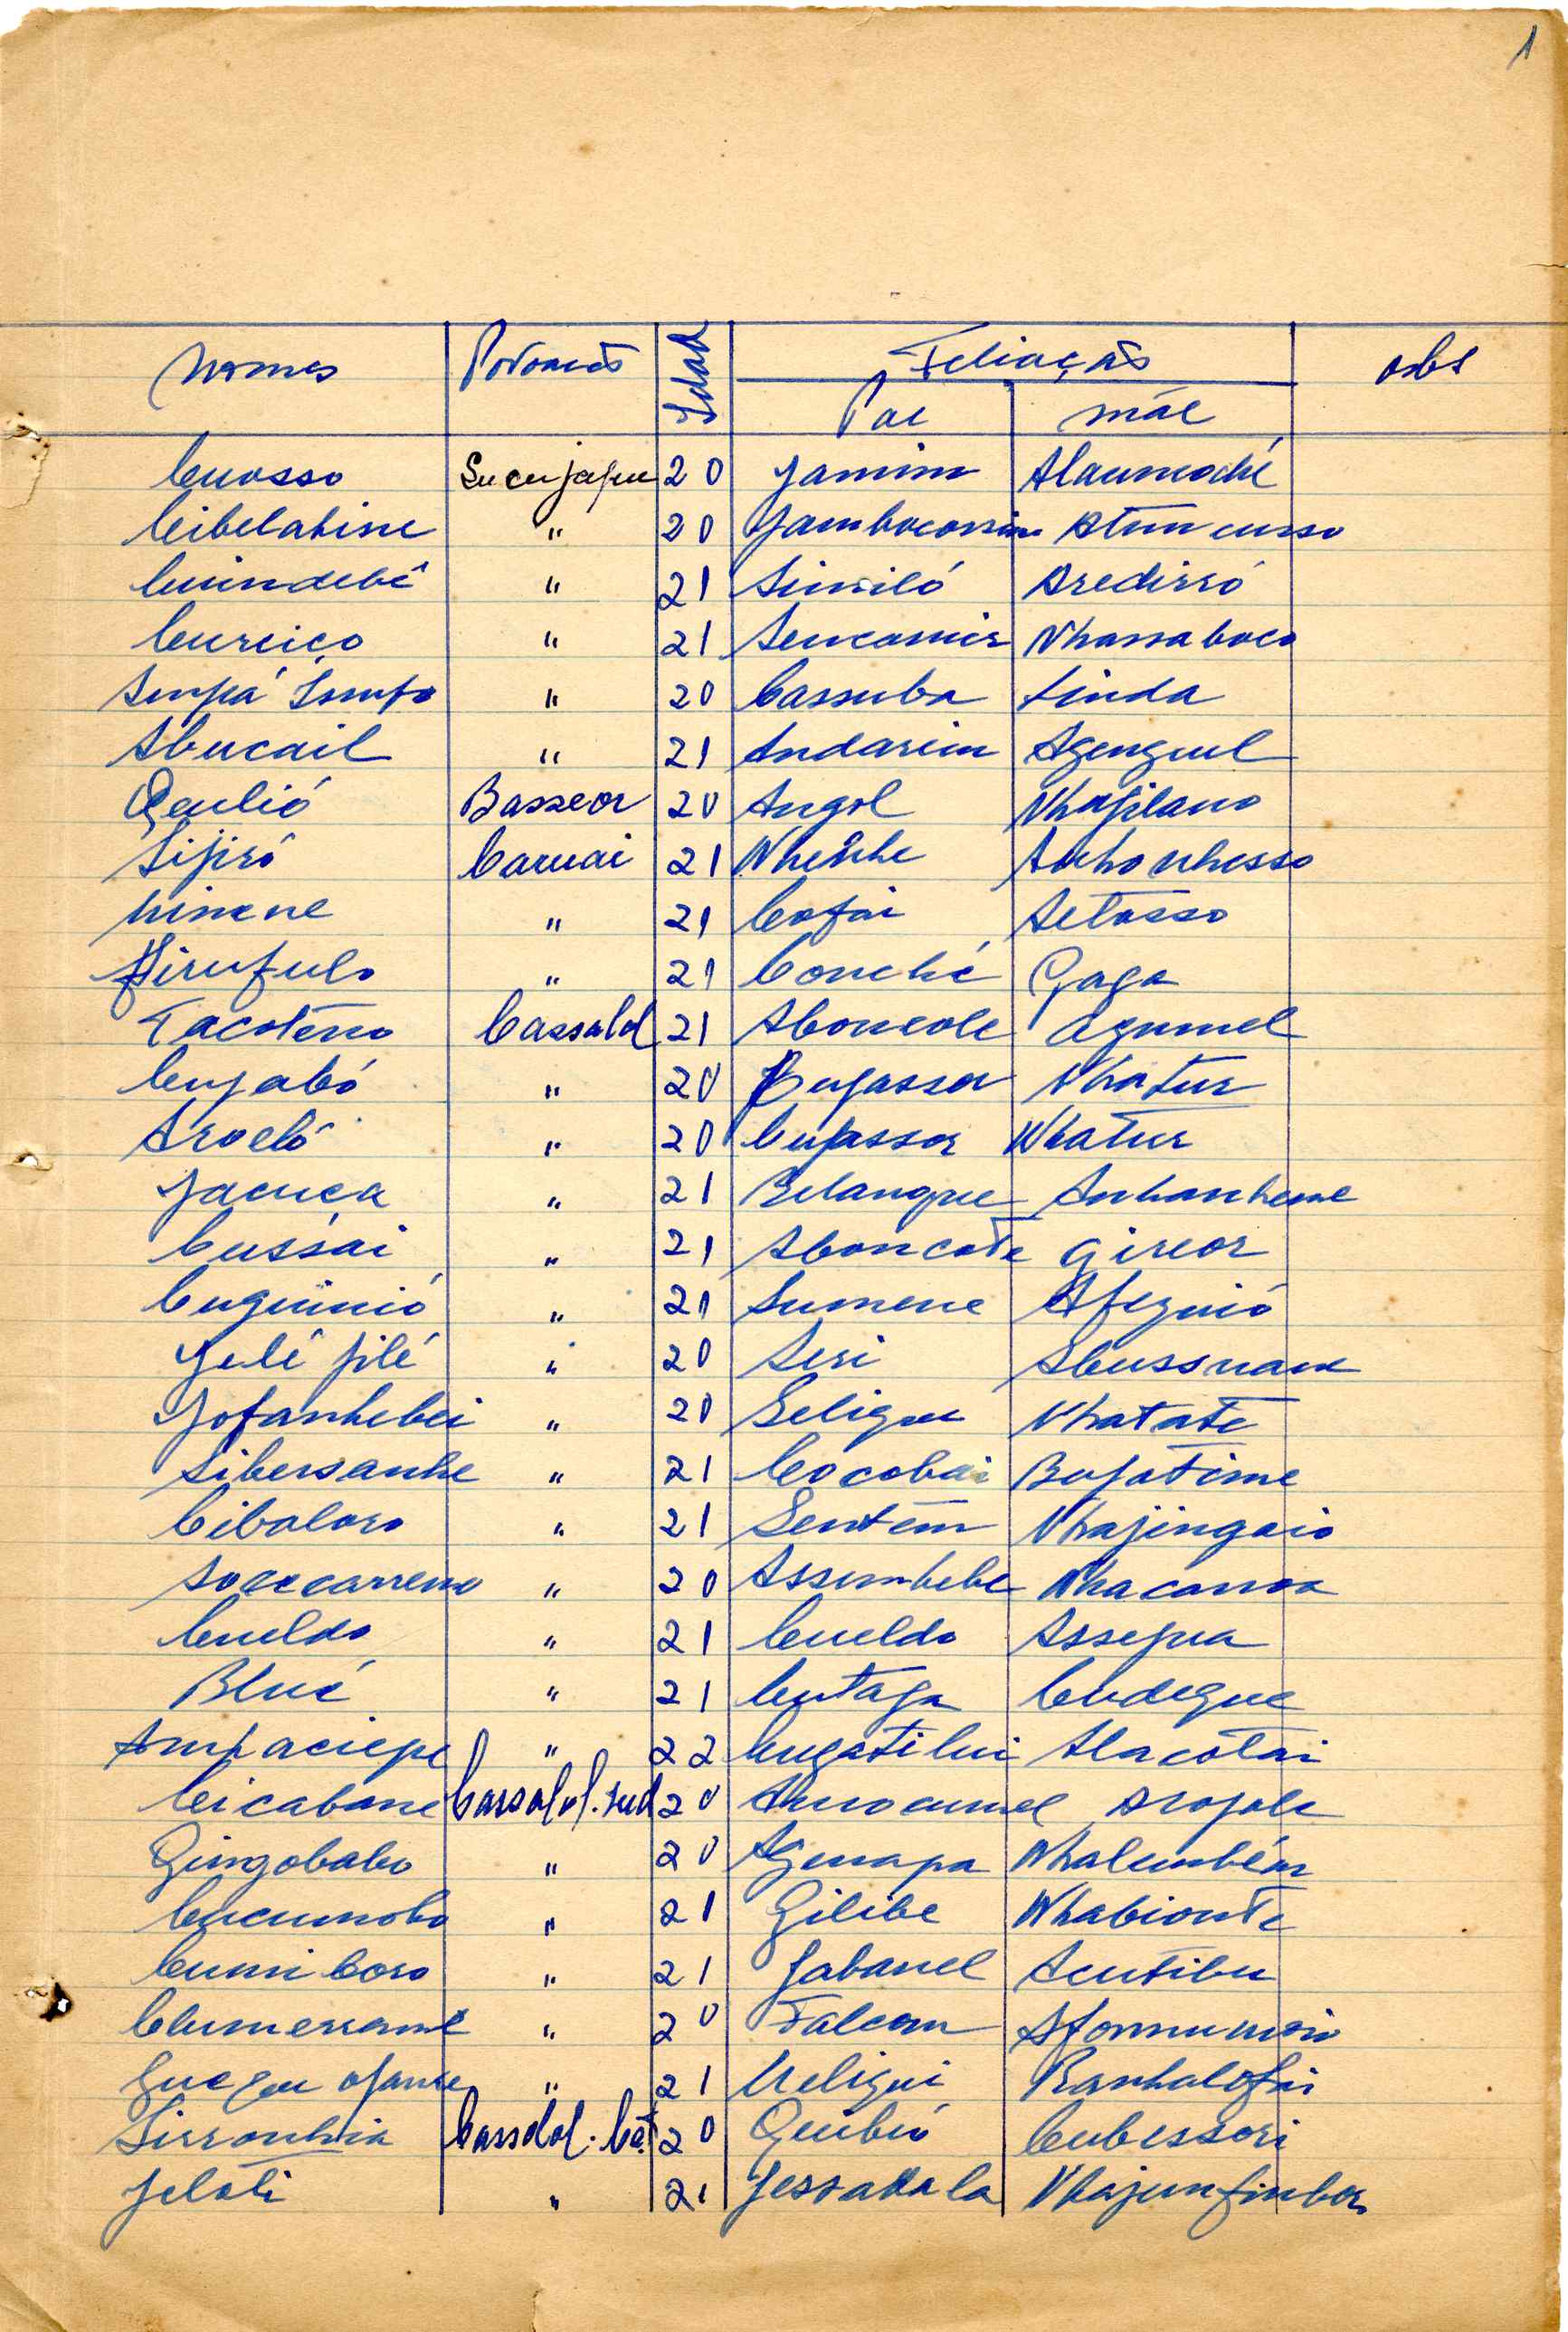 1
Nomes Povoação Idad Filiação obs
Pai mãe
Cuosso Sucujaque 20 Jamim Alaumoché
Cibelabine " 20 Jambocossim Atum cusso
Cuindebé " 21 Similó Aredirró
Cureiço " 21 Sencomir Nhassaboco
20 Cassuba Linda
Abucail " 21 Andarim Agenguel
Qeulió Basseor 20 Angol Nhajilano
Sijiró Caruai 21 Nhenhe Anhonhesso
Ninene " 21 Cofai Setosso
Jirufulo " 21 Conché Gaga
Tacoteno Cassalol 21 Aboncole Agumel
Cujabó " 20 Bujassor Nhatur
Arocló " 20 Cujassor Nhatur
Jacuca " 21 Belangue Anhanheme
Cussai " 21 Aboncote Gireor
Cuguinió " 21 Sumene Afeguió
Jelé jilé " 20 Seri Abussuam
Jofanhebei " 20 Seligue Nhatate
Sibersanhe " 21 Cocobai Bujatime
Cibaloro " 21 Sentem Nhajingaio
" 20 Assumbebe Nhacamoa
Cueldo " 21 Cueldo Assejua
Blué " 21 Cutaga Cudegue
Ampaciepe " 22 Cugatilui Alacotai
Cicabane Cassalol. sud 20 Arojale
Gingobabo " 20 Agunapa Nhalumbém
Cucumobo " 21 Gilibe Nhabionte
Cumi Coro " 21 Jabanel Acutibu
" 20 Falcom
" 21 Ueligui Banhalofai
Sirronhia Cassolol. Cat 20 Quibió Cubessori
Jeloti " 21 Jessabala